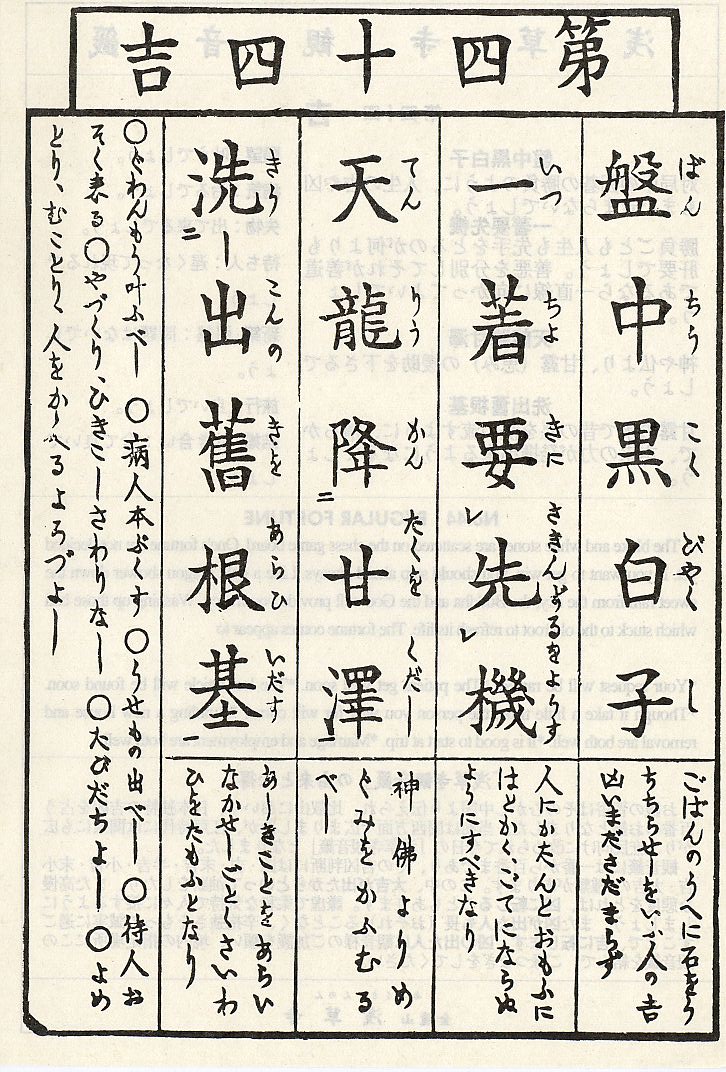 第四十四吉
ばん ちう こく びやく し
盤中黒白子
ごばんのうへに石をう
ちちらせしをいふ人の吉
凶いまださだまらず
いつ ちよ きに さきんずるをようす
一著要レ先レ機
人にかたんとおもふに
はとかくごてにならぬ
ようにすべきなり
てん りう かん たくを くだし
天龍降二甘澤一
神佛よりめ
ぐみをかふむる
べし
きう こんの きを あらひ いだす
洗二出舊根基一
あしきことをあらい
ながせしごとさいわ
ひをたもふとなり
〇ぐわんもう叶ふべし 〇病人本ぶくす 〇うせもの出べし 〇待人お
そく来る 〇やづくり、ひきこしさわりなし 〇たびだちよし 〇よめ
とり、むことり、人をかゝへるよろづよし